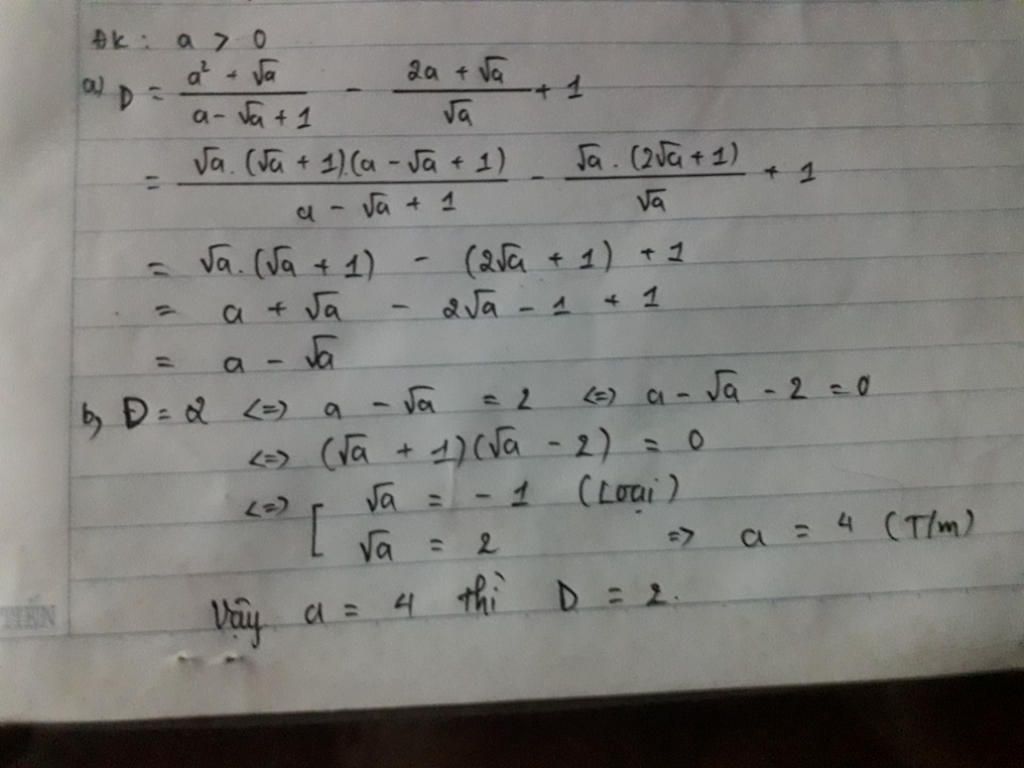 ĐK: a > 0
a) D = (a² + √a)/(a - √a + 1) - (2a + √a)/√a + 1
= (√a.(√a + 1).(a - √a + 1))/(a - √a + 1) - (√a.(2√a + 1))/√a + 1
= √a.(√a + 1) - (2√a + 1) + 1
= a + √a - 2√a - 1 + 1
= a - √a
b, D = 2 <=> a - √a = 2 <=> a - √a - 2 = 0
<=> (√a + 1)(√a - 2) = 0
<=> [ √a = -1 (Loại)
√a = 2 => a = 4 (T/m)
Vậy a = 4 thì D = 2.
TIẾN